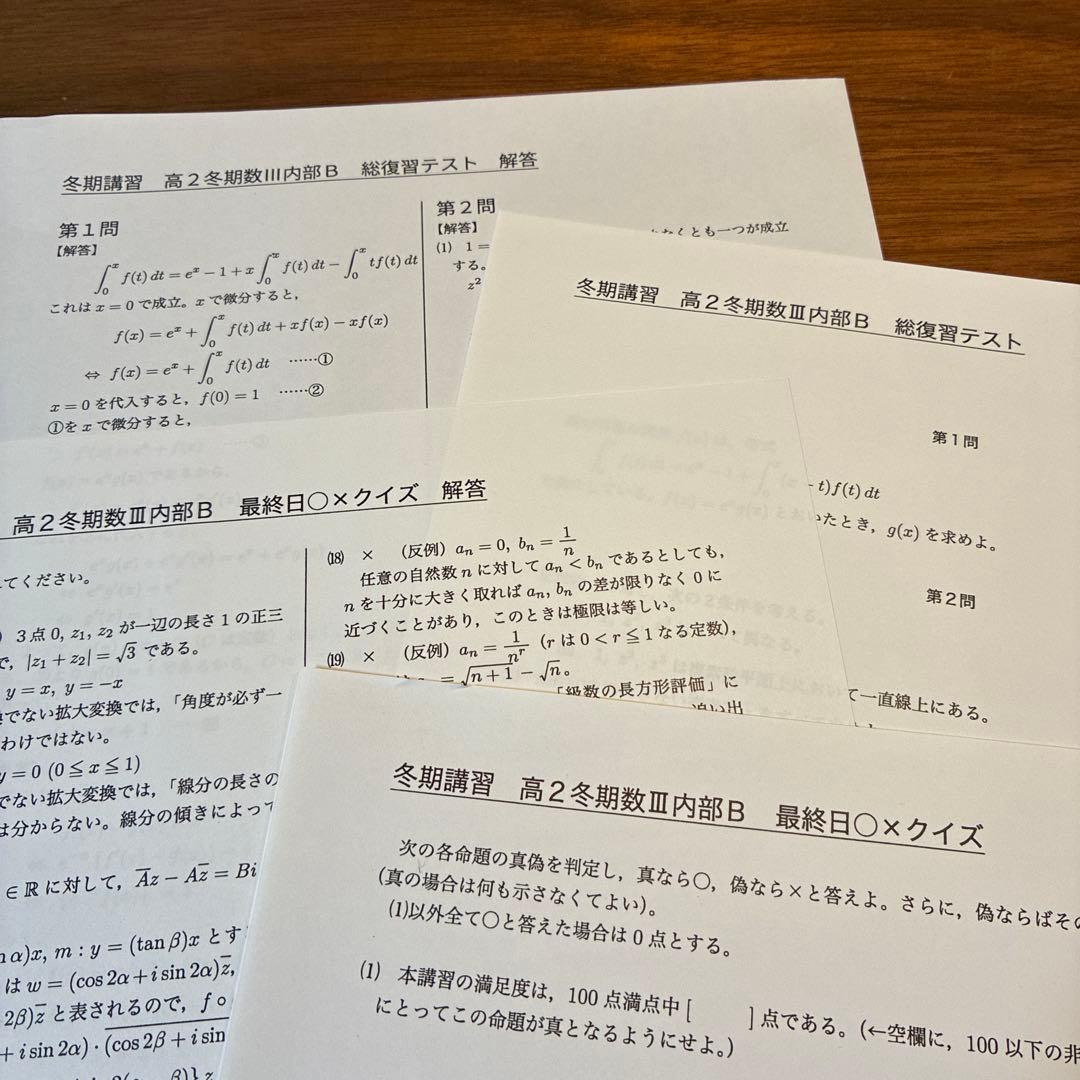 冬期講習 高２冬期数III内部Ｂ 総復習テスト 解答
第１問
【解答】
∫₀ˣ f(t) dt = eˣ − 1 + x ∫₀ˣ f(t) dt − ∫₀ˣ tf(t) dt
これは x = 0 で成立。x で微分すると，
f(x) = eˣ + ∫₀ˣ f(t) dt + xf(x) − xf(x)
⇔ f(x) = eˣ + ∫₀ˣ f(t) dt ……①
x = 0 を代入すると，f(0) = 1 ……②
①を x で微分すると，
第２問
【解答】
(1) 1 =
なくとも一つが成立
する。
z²
冬期講習 高２冬期数Ⅲ内部Ｂ 総復習テスト
第１問
− t)f(t) dt
いたとき，g(x) を求めよ。
第２問
て一直線上にある。
高２冬期数Ⅲ内部Ｂ 最終日○×クイズ 解答
てください。
３点 0, z₁, z₂ が一辺の長さ 1 の正三
で，|z₁ + z₂| = √3 である。
y = x, y = −x
でない拡大変換では，「角度が必ず一
わけではない。
y = 0 (0 ≦ x ≦ 1)
でない拡大変換では，「線分の長さの
は分からない。線分の傾きによって
∈ ℝ に対して，A̅z − Az̅ = Bi
α)x, m : y = (tan β)x とす
は w = (cos 2α + i sin 2α)z̅,
2β)z̅ と表されるので，f ∘
+ i sin 2α) · (cos 2β + i sin
(18) × （反例）aₙ = 0, bₙ = 1/n
任意の自然数 n に対して aₙ < bₙ であるとしても，
n を十分に大きく取れば aₙ, bₙ の差が限りなく 0 に
近づくことがあり，このときは極限は等しい。
(19) × （反例）aₙ = 1/nʳ (r は 0 < r ≦ 1 なる定数)，
= √(n + 1) − √n。
「級数の長方形評価」に
冬期講習 高２冬期数Ⅲ内部Ｂ 最終日○×クイズ
次の各命題の真偽を判定し，真なら○，偽なら×と答えよ。さらに，偽ならばその
(真の場合は何も示さなくてよい)。
(1)以外全て○と答えた場合は 0 点とする。
(1) 本講習の満足度は，100 点満点中 [ ] 点である。(←空欄に，100 以下の非
にとってこの命題が真となるようにせよ。)